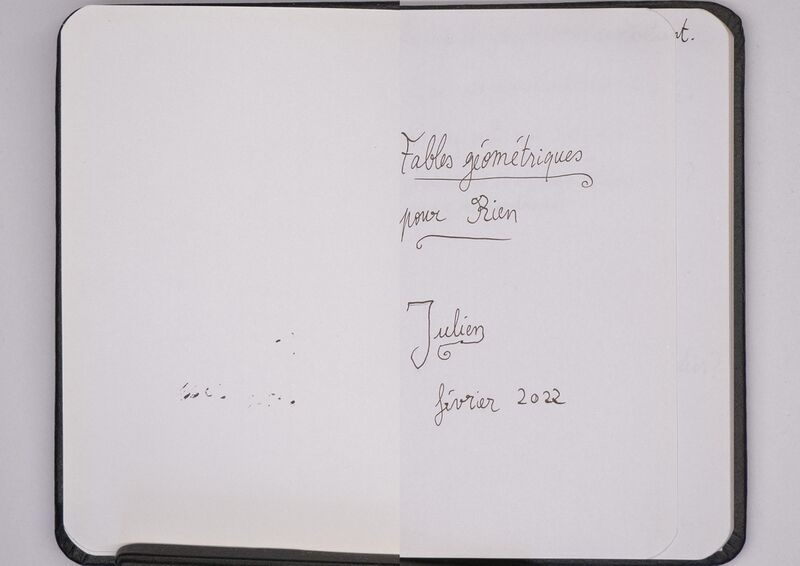 nt.
Fables géométriques
pour Rien
Julien
février 2022